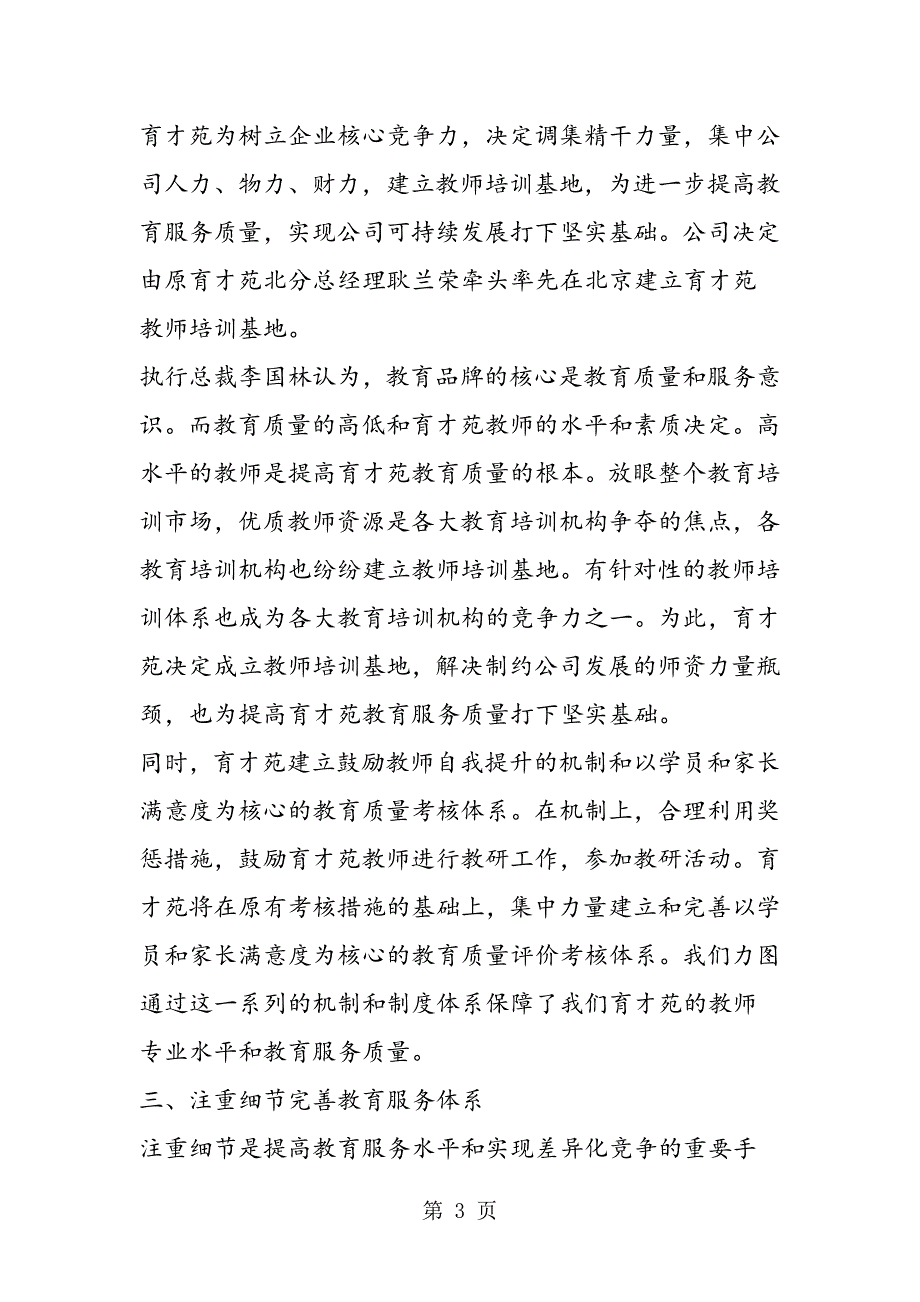 育才苑为树立企业核心竞争力，决定调集精干力量，集中公
司人力、物力、财力，建立教师培训基地，为进一步提高教
育服务质量，实现公司可持续发展打下坚实基础。公司决定
由原育才苑北分总经理耿兰荣牵头率先在北京建立育才苑
教师培训基地。
执行总裁李国林认为，教育品牌的核心是教育质量和服务意
识。而教育质量的高低和育才苑教师的水平和素质决定。高
水平的教师是提高育才苑教育质量的根本。放眼整个教育培
训市场，优质教师资源是各大教育培训机构争夺的焦点，各
教育培训机构也纷纷建立教师培训基地。有针对性的教师培
训体系也成为各大教育培训机构的竞争力之一。为此，育才
苑决定成立教师培训基地，解决制约公司发展的师资力量瓶
颈，也为提高育才苑教育服务质量打下坚实基础。
同时，育才苑建立鼓励教师自我提升的机制和以学员和家长
满意度为核心的教育质量考核体系。在机制上，合理利用奖
惩措施，鼓励育才苑教师进行教研工作，参加教研活动。育
才苑将在原有考核措施的基础上，集中力量建立和完善以学
员和家长满意度为核心的教育质量评价考核体系。我们力图
通过这一系列的机制和制度体系保障了我们育才苑的教师
专业水平和教育服务质量。
三、注重细节完善教育服务体系
注重细节是提高教育服务水平和实现差异化竞争的重要手
第 3 页